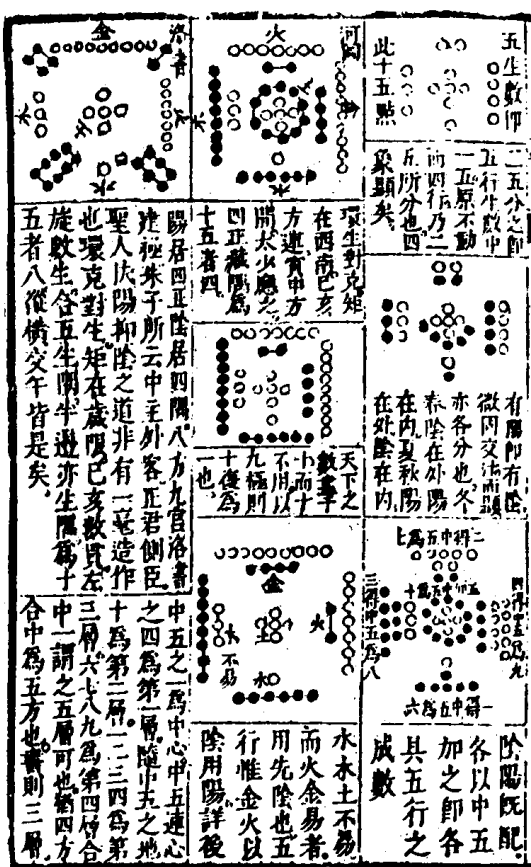 五生數仰
此十五點
二五小之即
五行生數中
一五原不動
而四行乃二
五所分也四
象顯矣
有陽即有陰
微四交法而顯
亦各分也冬
春陰在外陽
在内夏秋陽
在外陰在内
二得中五為七
四得中五為九
三得中五為八
一得中五為六
陰陽既配
各以中五
加之即各
具五行之
成數
河圖
火
水
環生對克矩
在西南巳亥
方遯寅申方
開太少應之
四正藏隅為
十五者四
天下之
數盡乎
十而十
不用以
九極則
十復為
一也
金
火
土
木
不易
水
水木土不易
而火金易者
用先陰也五
行惟金火以
陰用陽詳後
洛書
金
火
木
水
陽居四正陰居四隅八方九宮洛書
建極朱子所云中主外客正君側臣
聖人扶陽抑陰之道非有一毫造作
也環克對生矩在歲陽巳亥數具左
旋數生合五生開牛遯亦生隅為十
五者八縱橫交午皆是矣
中五之一為中心中五連心
之四為第一層隨中五之地
十為第二層一二三四為第
三層六七八九為第四層合
中一謂之五層可也猶四方
合中為五方也書則三層